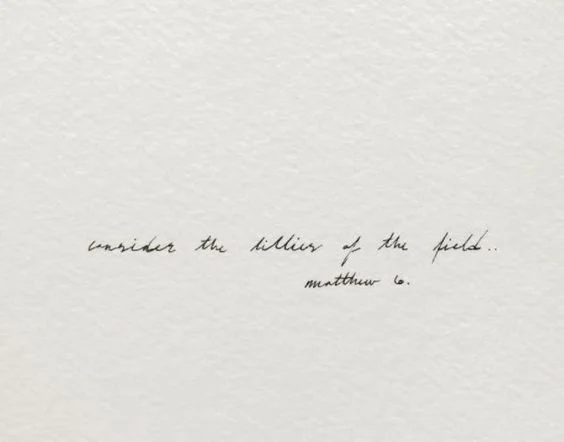 consider the lillies of the field..
matthew 6.